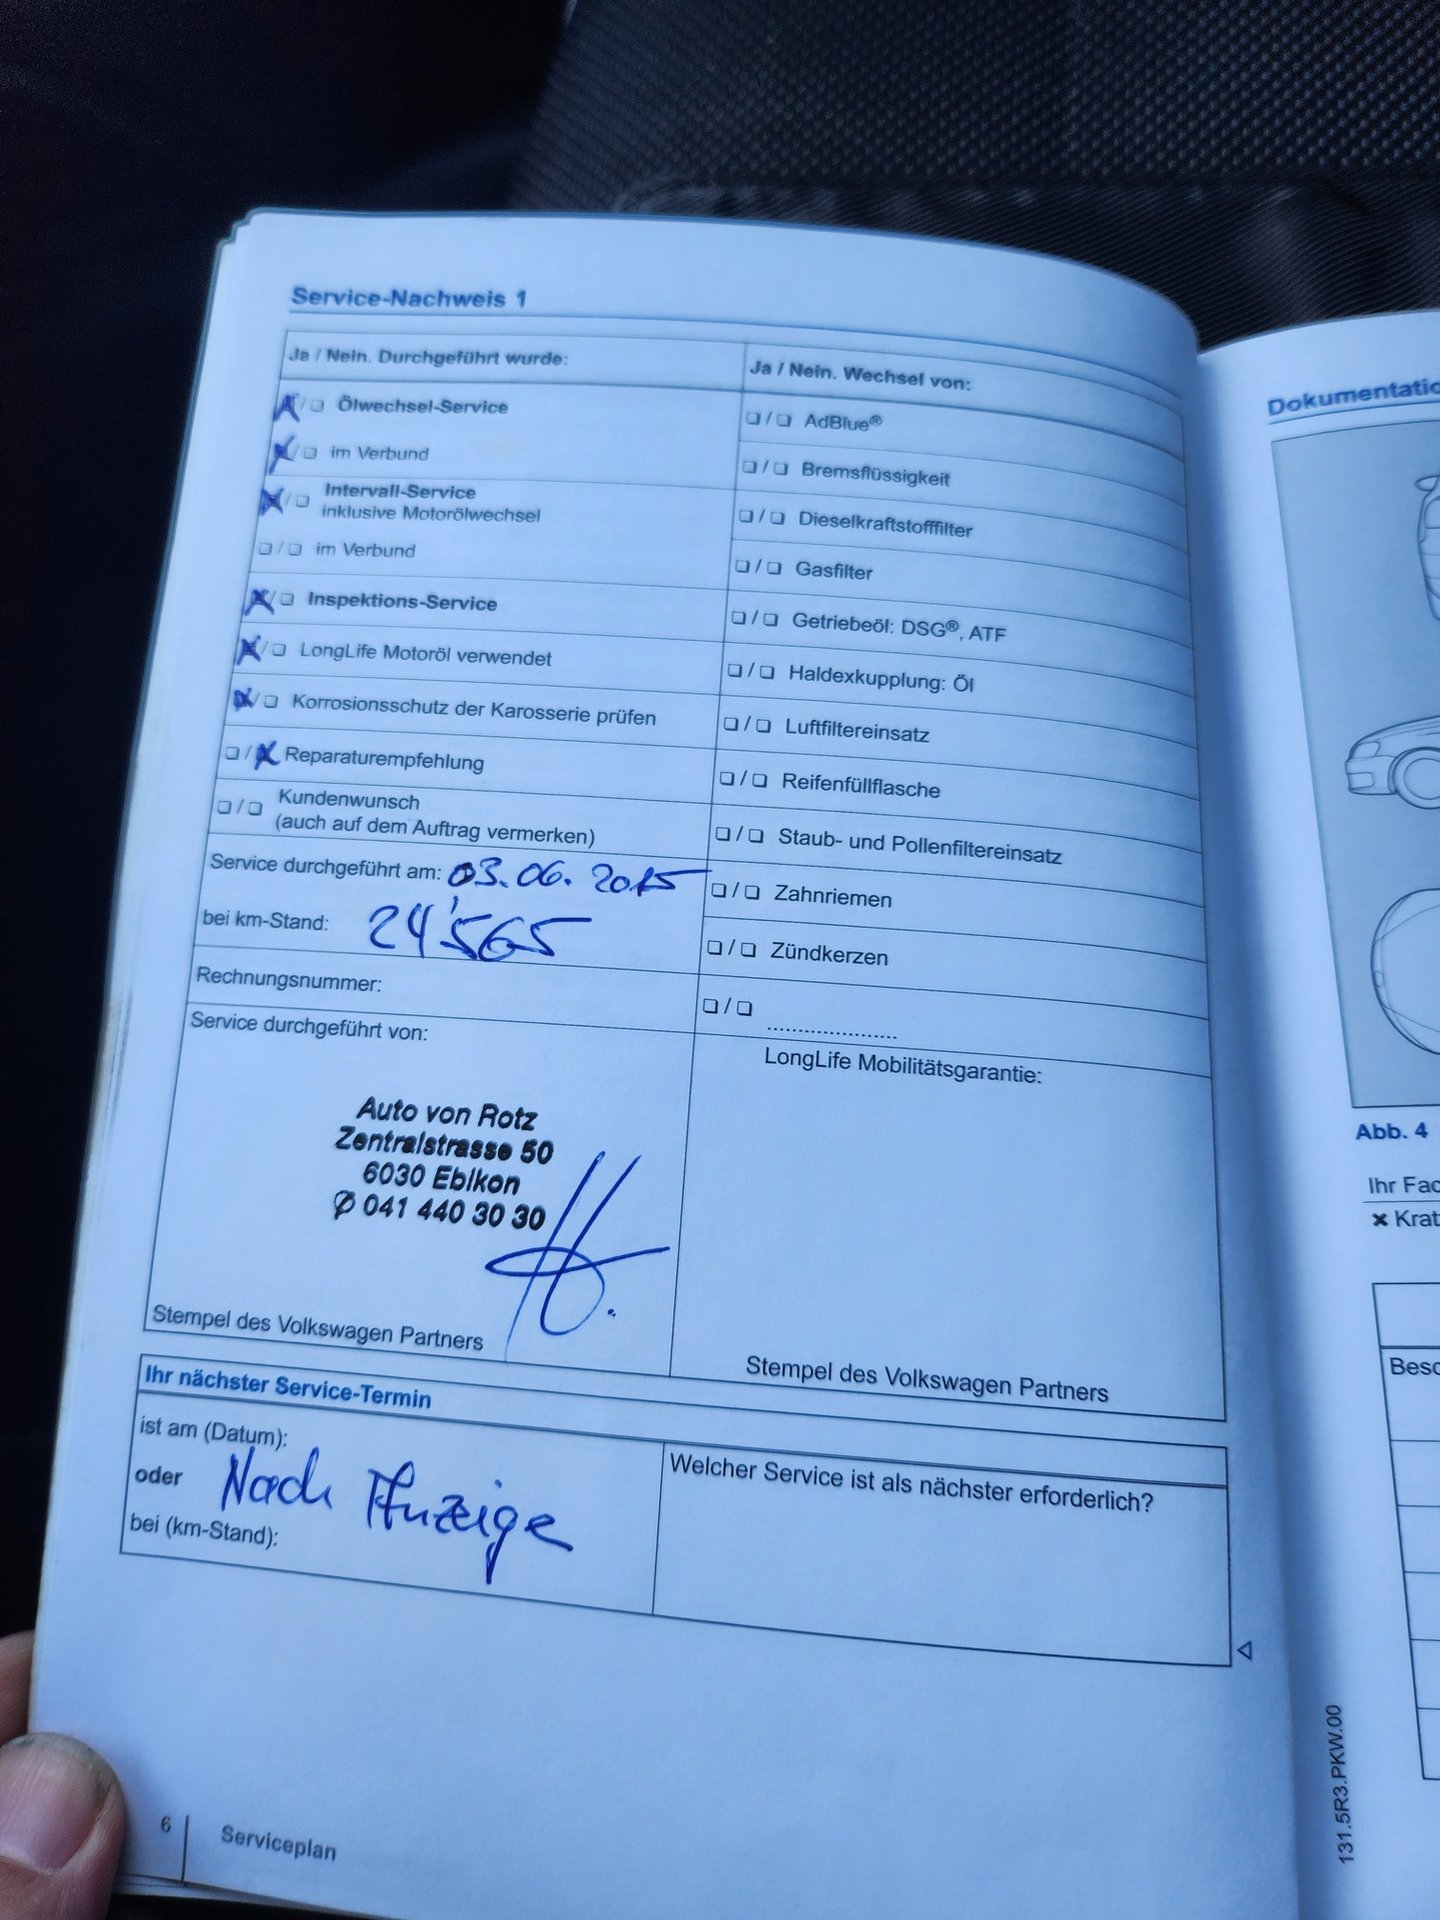 Service-Nachweis 1
Ja / Nein. Durchgeführt wurde:
Ölwechsel-Service
im Verbund
Intervall-Service
inklusive Motorölwechsel
im Verbund
Inspektions-Service
LongLife Motoröl verwendet
Korrosionsschutz der Karosserie prüfen
Reparaturempfehlung
Kundenwunsch
(auch auf dem Auftrag vermerken)
Service durchgeführt am: 03.06.2015
bei km-Stand: 24'565
Rechnungsnummer:
Service durchgeführt von:
Auto von Rotz
Zentralstrasse 50
6030 Ebikon
✆ 041 440 30 30
Stempel des Volkswagen Partners
Ja / Nein. Wechsel von:
AdBlue®
Bremsflüssigkeit
Dieselkraftstofffilter
Gasfilter
Getriebeöl: DSG®, ATF
Haldexkupplung: Öl
Luftfiltereinsatz
Reifenfüllflasche
Staub- und Pollenfiltereinsatz
Zahnriemen
Zündkerzen
.....................
LongLife Mobilitätsgarantie:
Stempel des Volkswagen Partners
Ihr nächster Service-Termin
ist am (Datum):
oder Nach Anzeige
bei (km-Stand):
Welcher Service ist als nächster erforderlich?
6 Serviceplan
Dokumentatio
Abb. 4
Ihr Fac
× Krat
Besc
131.5R3.PKW.00